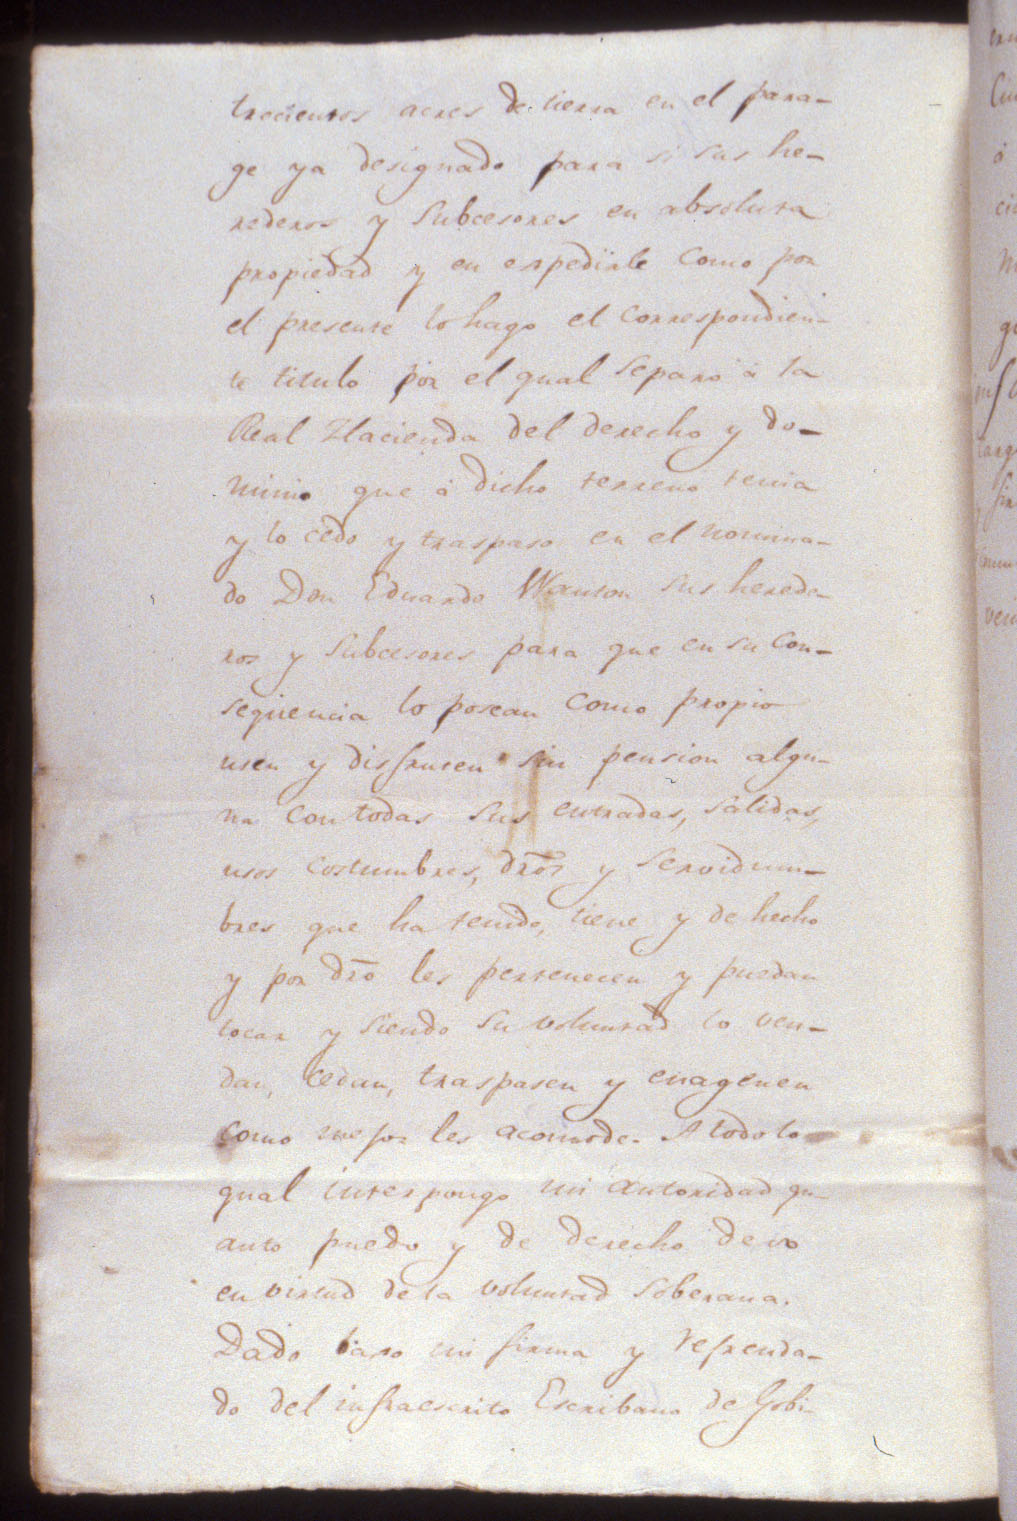 trecientos acres de tierra en el para-
ge ya designado para si sus he-
rederos y Subcesores en absoluta
propiedad y en expedirle como por
el presente lo hago el correspondien-
te titulo por el qual separo à la
Real Hacienda del derecho y do-
minio que à dicho terreno tenia
y lo cedo y traspaso en el nomina-
do Don Eduardo Wanton sus herede-
ros y Subcesores para que en su con-
seqüencia lo posean como propio
usen y disfruten sin pension algu-
na con todas sus entradas, salidas,
usos costumbres, dros y servidum-
bres que ha tenido, tiene y de hecho
y por dro les pertenecen y puedan
tocar y siendo su voluntad lo ven-
dan, cedan, traspasen y enagenen
como mejor les acomode. A todo lo
qual interpongo mi autoridad qu-
anto puedo y de derecho devo
en virtud de la voluntad Soberana.
Dado baxo mi firma y refrenda-
do del infraescrito Escribano de Gobi-